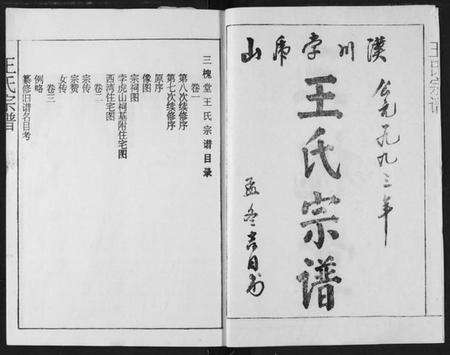 公元一九九三年
汉川孛虎山
王氏宗谱
孟冬吉日刊
王氏宗谱
三槐堂王氏宗谱目录
卷一
第八次续修序
第七次续修序
原序
像图
宗祠图
孛虎山祠基附住宅图
西湾住宅图
卷二
宗传
宗赞
女传
卷三
例略
纂修旧谱名目考
王氏宗谱